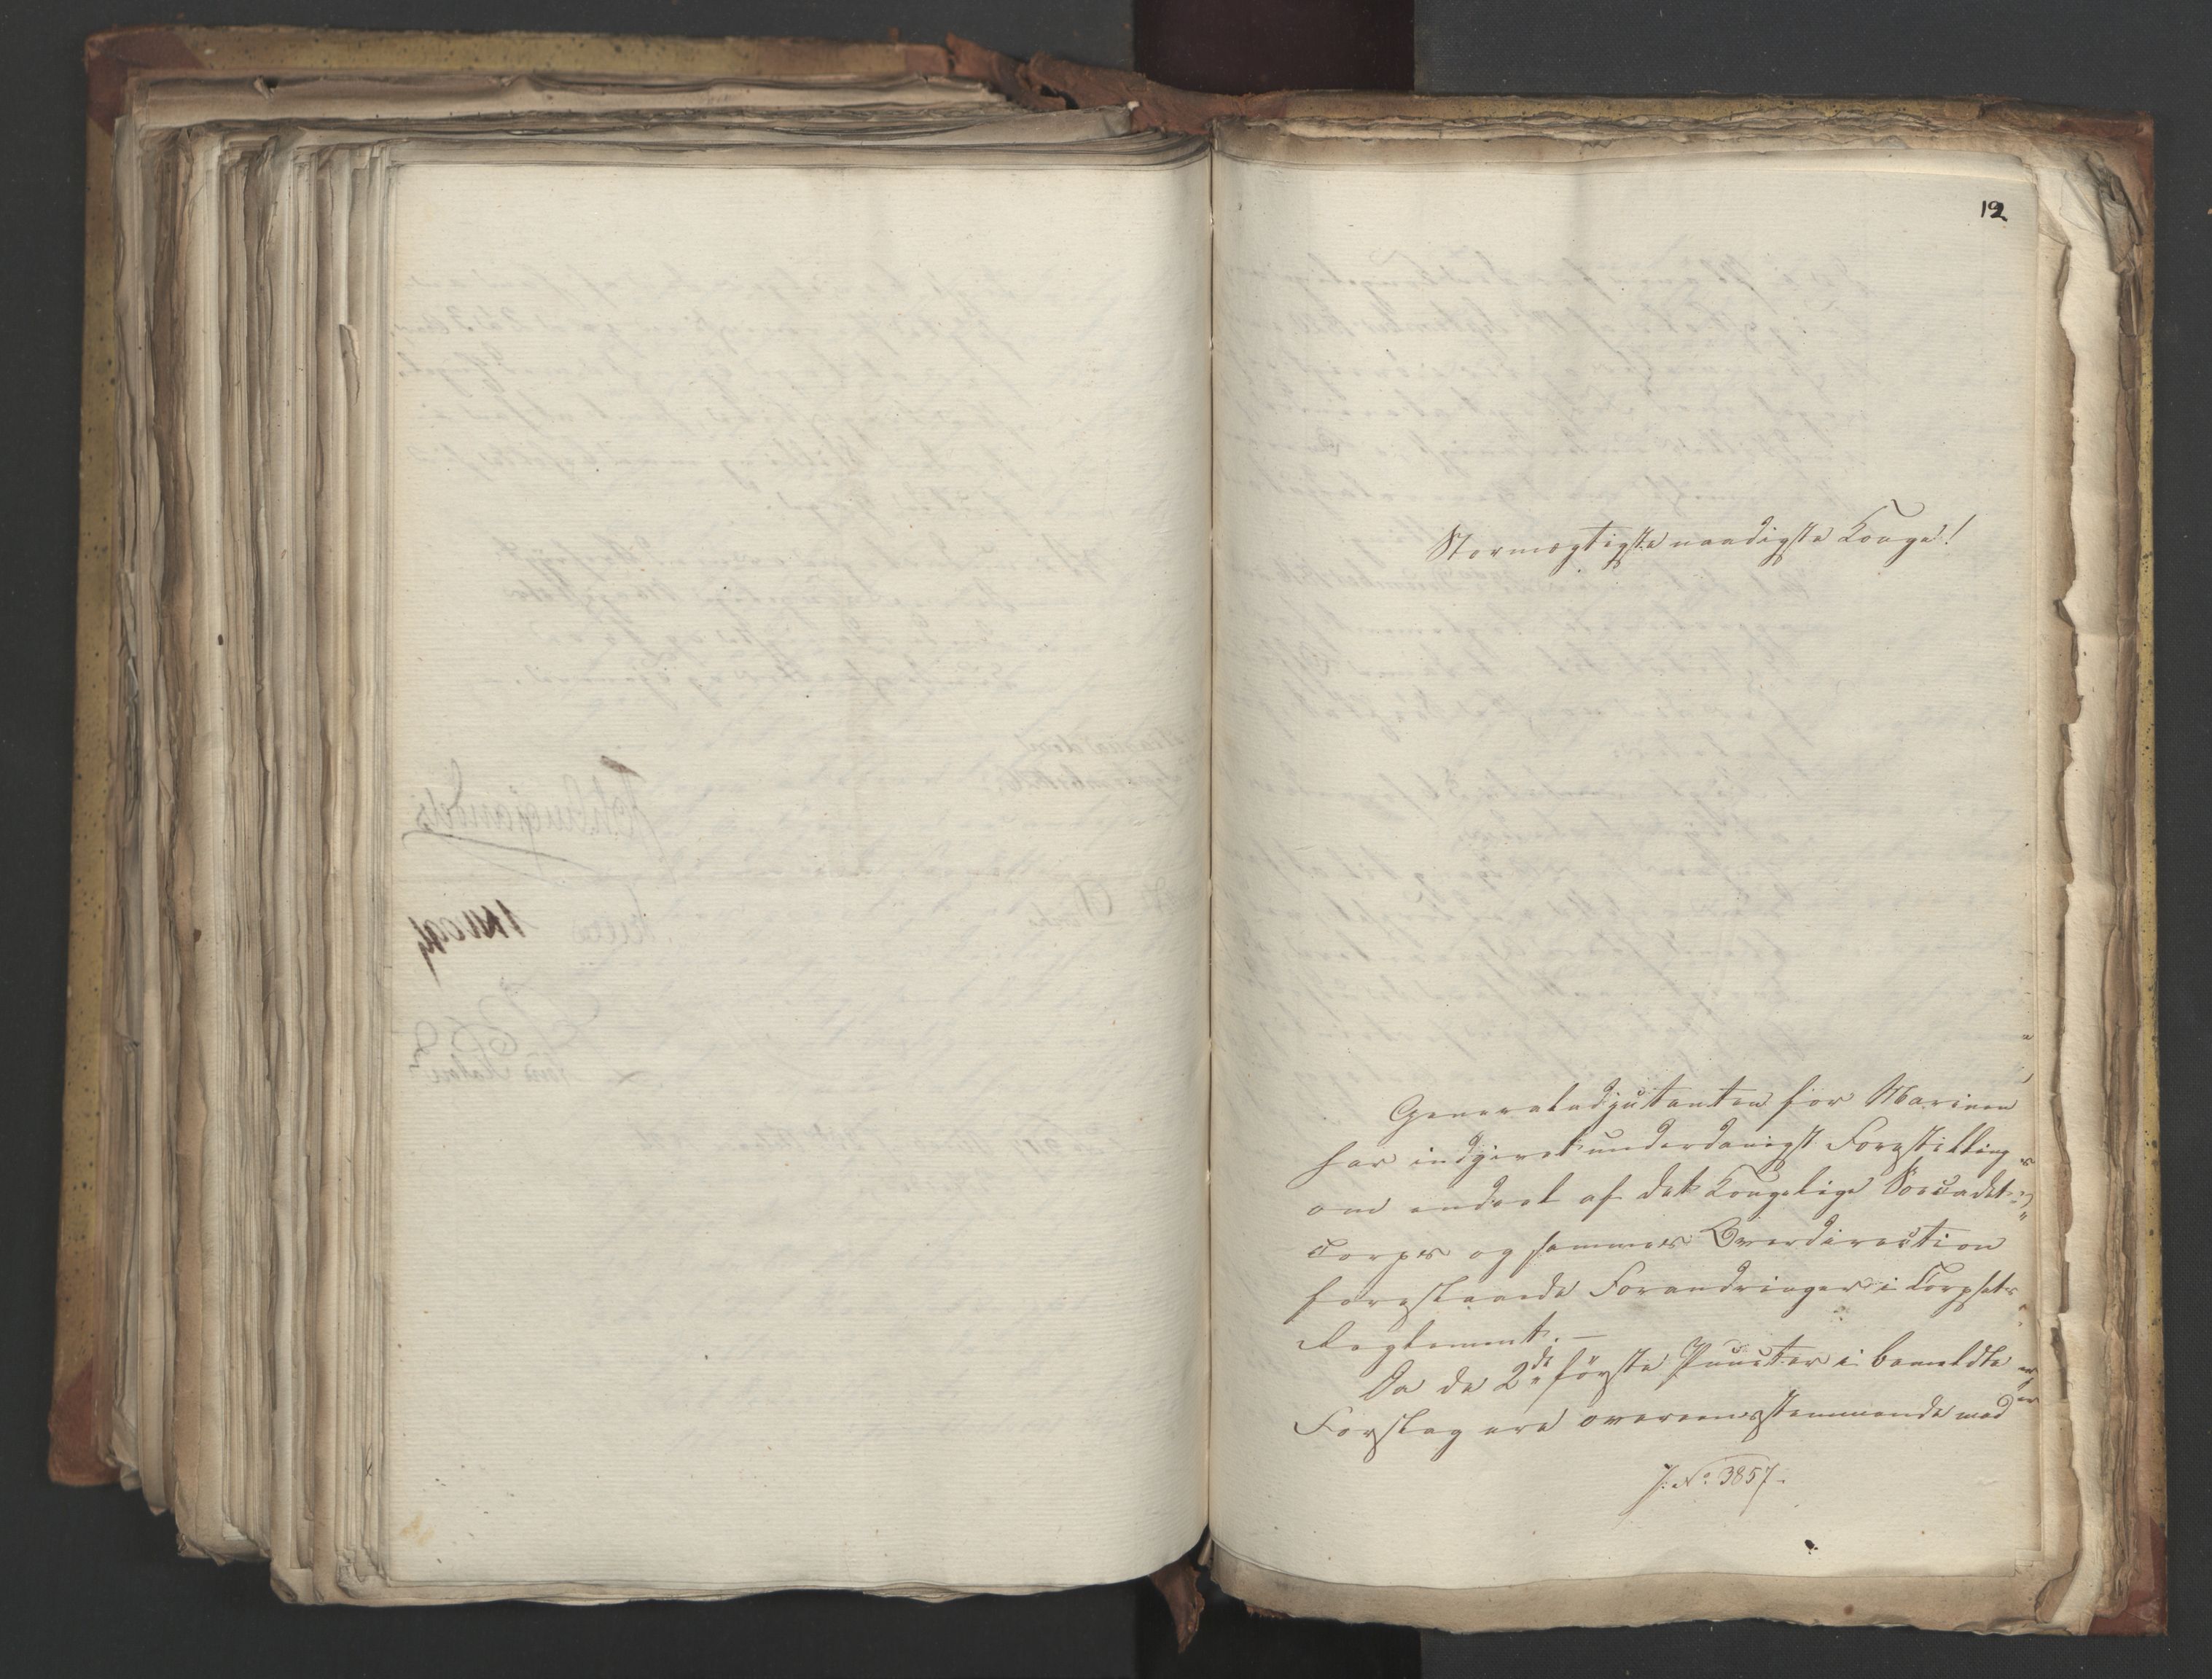 12
Stormægtigste naadigste Konge!
Generaladjutanten for Marinen
har indgivet underdanigst Forestilling
om endeel af det Kongelige Söecadet-
Corps og sammes Overdirection
foreslaaede Forandringer i Corpsets
Reglement. –
Da de 2de første Puncter i bemeldte
Forslag ere overeensstemmende med
J: No 3857.